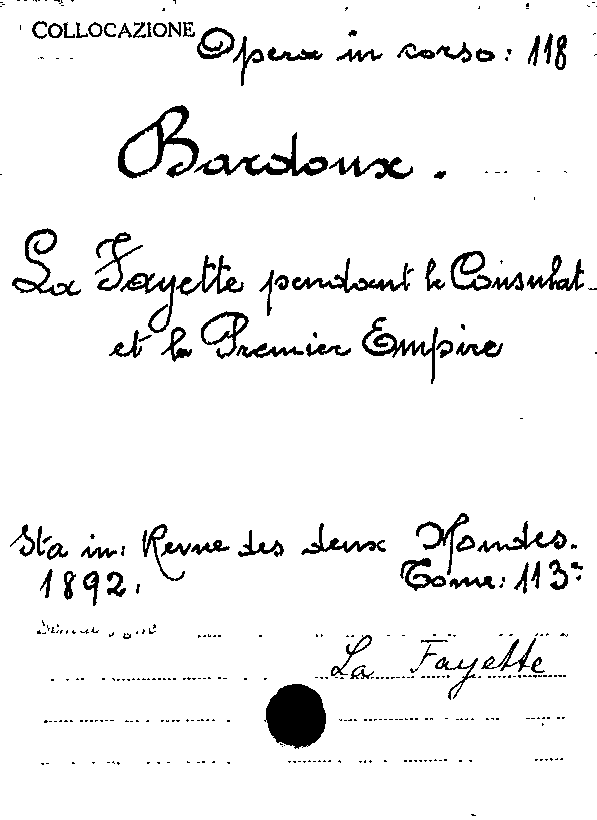 COLLOCAZIONE
Opera in corso: 118
Bardoux.
La Fayette pendant le Consulat
et le Premier Empire
Sta in: Revue des deux Mondes.
1892. Tome: 113º
La Fayette